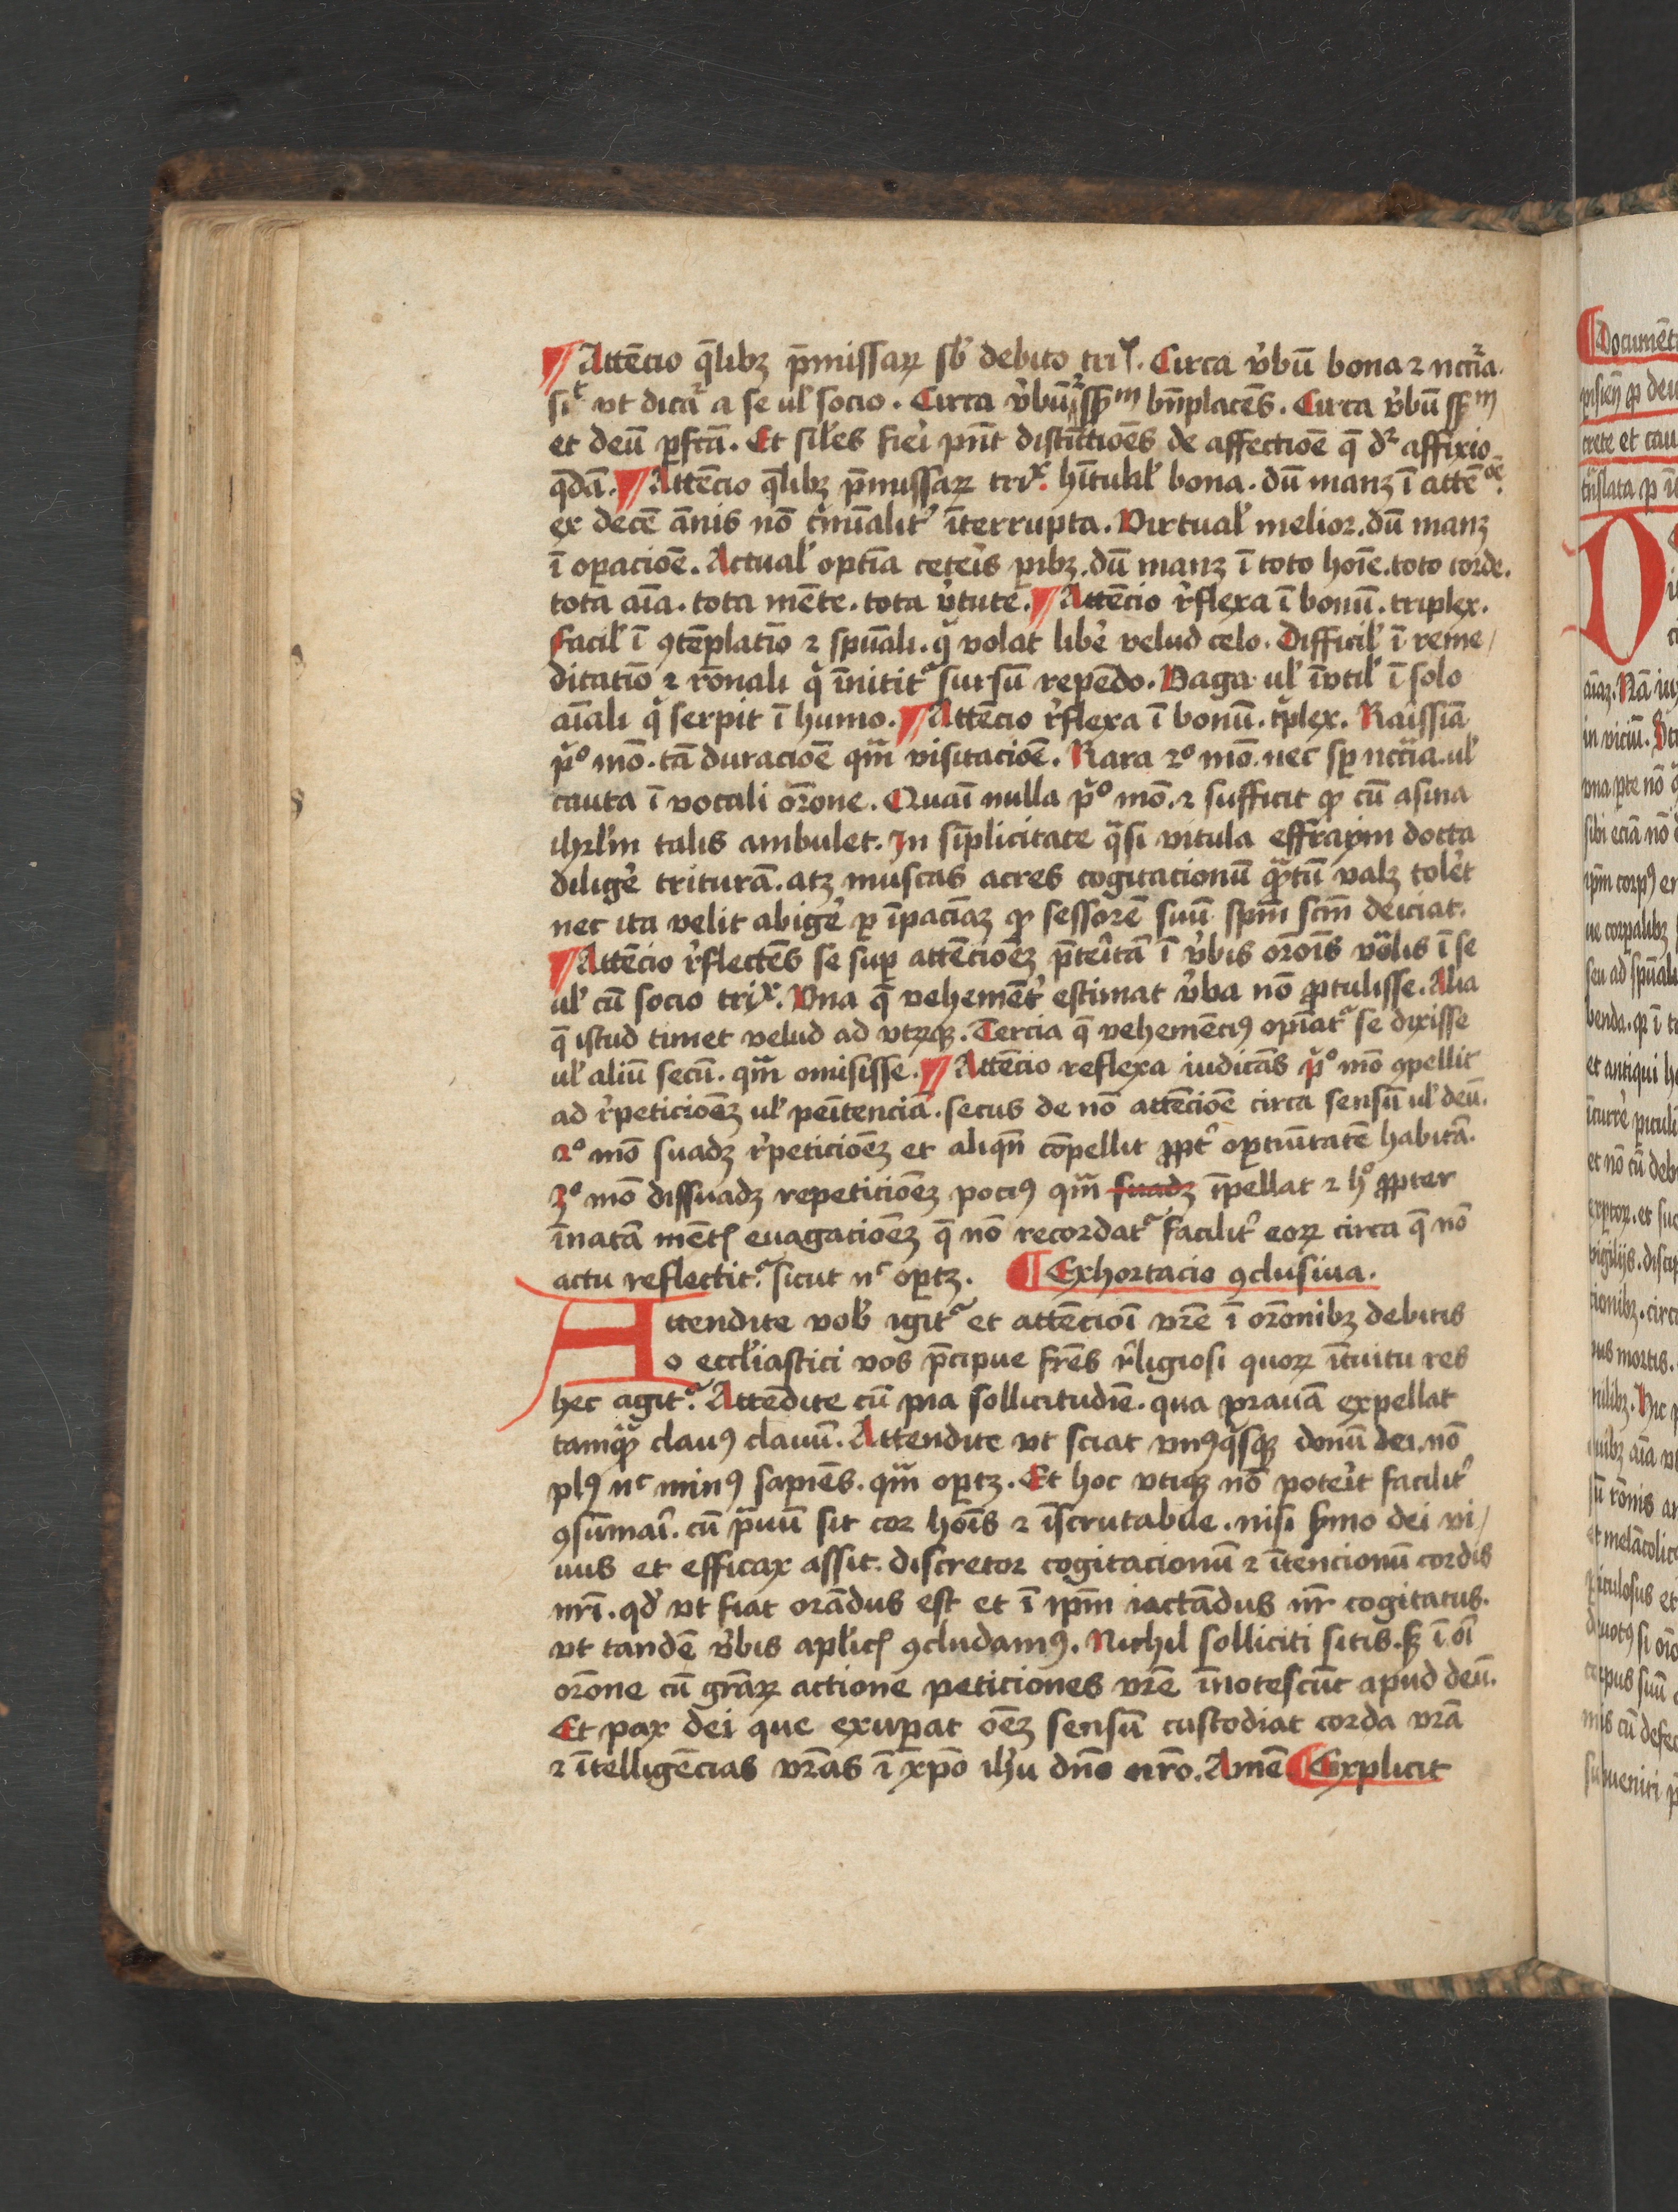 ¶ Attēcio q̄libꝫ p̄missaꝝ sb̓ debito triˣ. Circa v̓bū bona ⁊ nccīa.
sicͭ vt dicaᷓ a se ul̓ socio. Circa v̓bū ⁊ sp̄m bn̄placēs. Circa v̓bū sp̄m
et deū ꝑfc̄a. Et sil̓es fieī pn̄t distīctiōēs de affectiōē q̄ dꝛ affixio
q̄dā. ¶ Attēcio q̄libꝫ p̄missaꝝ triˣ. hītual̓ bona. dū manꝫ ī attēoē.
ex decē annis nō interrupta. Virtual̓ melior. dū manꝫ
ī oꝑaciōē. Actual̓ optīa ceteīs pibꝫ. dū manꝫ ī toto hoīe. toto corde.
tota aīa. tota mēte. tota v̓tute. ¶ Attēcio r̓flexa ī bonū. triplex.
facil̓ ī ꝯtēplatīo ⁊ spūali. q̄ volat lib̓e velud celo. Difficil̓ ī reme/
ditatīo ⁊ rōnali q̄ īnititᷓ sursū repēdo. Vaga ul̓ īvtil̓ ī solo
aīali q̄ serpit ī humo. ¶ Attēcio r̓flexa ī bonū. tͥplex. Raīssīa
pͥº mō. tā duraciōē qm̄ visitaciōē. Rara 2º mō. nec sꝑ nccīa. ul̓
cauta ī vocali orōne. Quaī nulla pͥº mō. ⁊ sufficit ꝙ cū asina
ihrl̓m talis ambulet. In sīplicitate qᷓsi vitula effraym docta
dilig̓e triturā. atꝫ muscas acres cogitacionū ꝙᷓtū valꝫ tol̓et
nec ita velit abig̓e ꝑ īpaciāꝫ ꝙ sessorē suū spm̄ scm̄ deiciat.
¶ Attēcio r̓flectēs se suꝑ attēciōēꝫ p̄teītā ī v̓bis orōis vōlis ī se
ul̓ cū socio triˣ. Vna q̄ vehemēt̓ estimat v̓ba nō ꝓtulisse. Alia
q̄ istud timet velud ad vtꝝqꝫ. Tercia q̄ vehemēciꝰ opīatᷓ se dixisse
ul̓ aliū secū. qm̄ omisisse. ¶ Attēcio reflexa iudicās pͥº mō ꝯpellit
ad r̓peticiōēꝫ ul̓ penītenciā. secus de nō attēciōē circa sensū ul̓ deū.
2º mō suadꝫ r̓peticiōēꝫ et aliqn̄ cōpellit ꝓpt̓ oꝑtūitatē habitā.
3º mō dissuadꝫ repeticiōēꝫ pociꝰ qm̄ suadꝫ īpellat ⁊ hͦ ꝓpter
īnatā mētꝭ euagaciōēꝫ q̄ nō recordatᷓ facilit̓ eoꝝ circa q̄ nō
actu reflectitᷓ. sicut nͨ oꝑtꝫ. ¶ Exhortacio ꝯclusiua.
Attendite vob̓ igitᷓ et attēcioī vrē ī orōnibꝫ debitis
o eccl̓iastici vos p̄cipue fr̄es r̓ligiosi quoꝝ ītuitu res
hec agitᷓ. Attēdite cū pia sollicitudīe. qua prauā expellat
tamqᷓ clauꝰ clauū. Attendite vt sciat vnꝰqᷓsqꝫ donū dei. nō
plꝰ nͨ minꝰ sapiēs. qm̄ oꝑtꝫ. Et hoc vtiqꝫ nō poteīt facilit̓
ꝯsūmaī. cū pᷓuū sit cor hoīs ⁊ īscrutabile. nisi s̓mo dei vi/
uus et efficax assit. discretor cogitacionū ⁊ ītencionū cordis
nrī. qd̓ vt fiat orādus est et ī ipm̄ iactādus nr̄ cogitatus.
vt tandē v̓bis apl̓icꝭ ꝯcludamꝰ. Nichil solliciti sitis. sꝫ ī oī
orōne cū grāꝝ actione peticiones vrē īnotescūt apud deū.
Et pax dei que exuꝑat oēꝫ sensū custodiat corda vrā
⁊ ītelligēcias vrās ī xp̄o ih̓u dn̄o nr̄o. Amē. ¶ Explicit